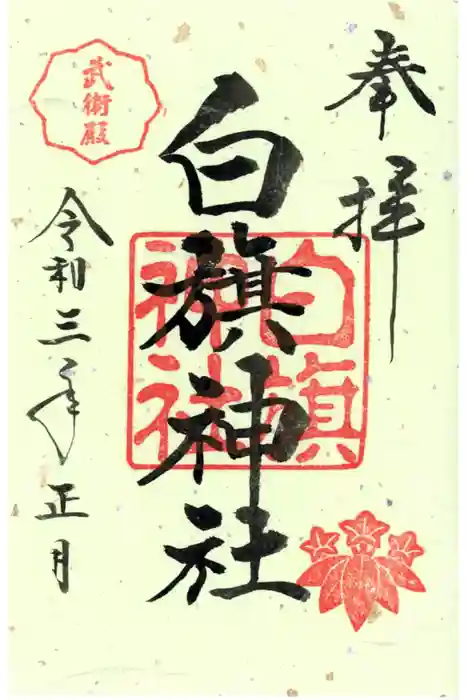 奉拝
白旗神社
白旗神社
武衛殿
令和三年正月